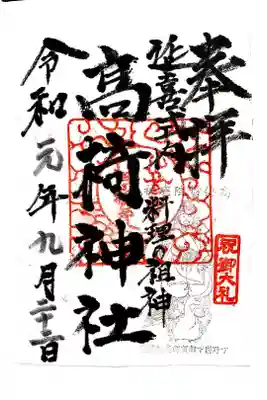 奉拝
延喜式内
料理の祖神
高椅神社
令和元年九月二十二日
祝御大礼